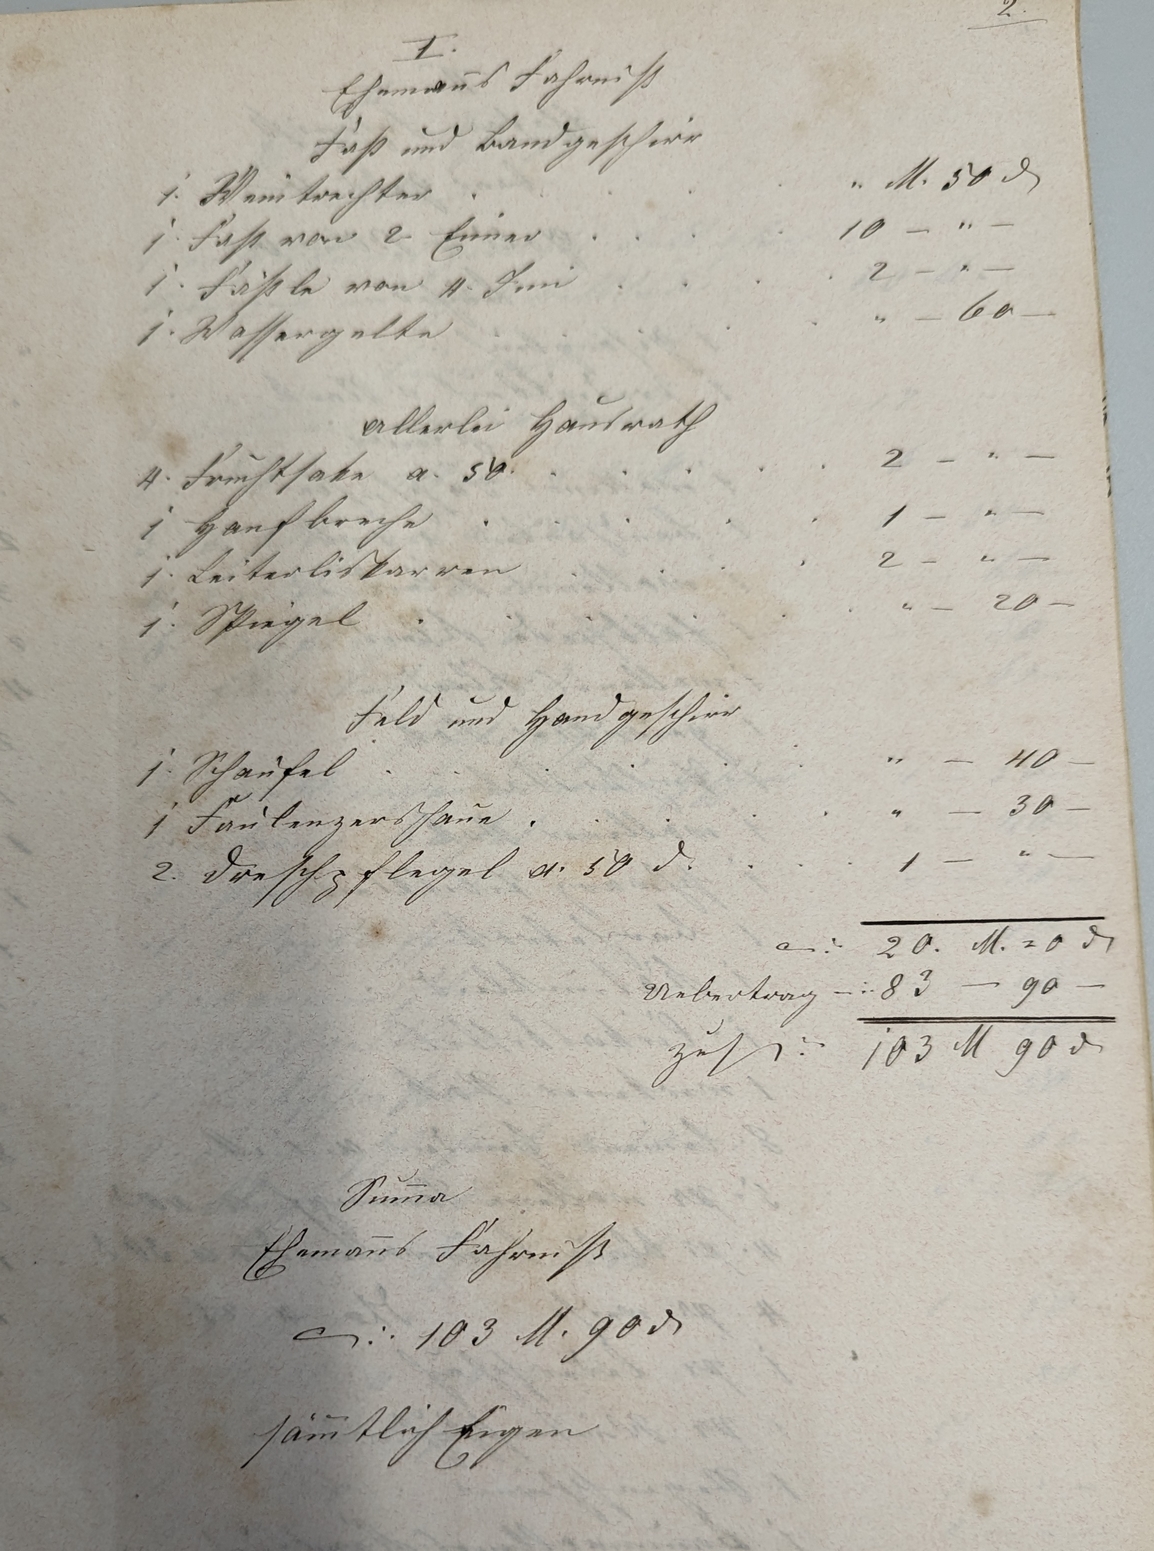 2.
I.
Ehemanns Fahrniß
Faß und Bandgeschirr
1. Weintrechter . . . . " M. 50 ₰
1. Faß von 2 Eimer . . . . 10 — " —
1. Fäßle von 4. Imi . . . 2 — " —
1. Wassergelte . . . . " — 60 —
allerlei Hausrath
4. Fruchtsäke a. 50. . . . . 2 — " —
1 Hanfbreche . . . . . 1 — " —
1. Leiterliskarren . . . . 2 — " —
1. Spiegel . . . . . " — 20 —
Feld und Handgeschirr
1. Schaufel . . . . . " — 40 —
1 Faulenzershaue . . . . " — 30 —
2. Dreschpflegel a. 50 ₰. . . . 1 — " —
: 20. M. 20 ₰
Uebertrag —: 83 — 90 —
: 103 M 90 ₰
Suma̅
Ehemanns Fahrniß
: 103 M. 90 ₰
sämtlich Eigen